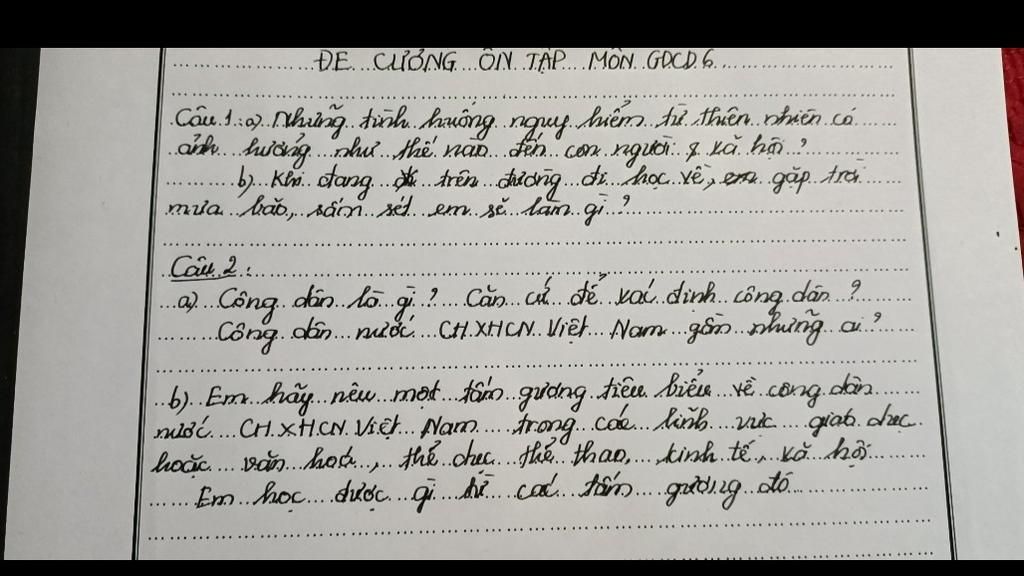 ĐỀ CƯƠNG ÔN TẬP MÔN GDCD 6
Câu 1: a) Những tình huống nguy hiểm từ thiên nhiên có
ảnh hưởng như thế nào đến con người & xã hội?
b) Khi đang trên đường đi học về, em gặp trời
mưa bão, sấm sét em sẽ làm gì?
Câu 2:
a) Công dân là gì? Căn cứ để xác định công dân?
Công dân nước CH XHCN Việt Nam gồm những ai?
b) Em hãy nêu một tấm gương tiêu biểu về công dân
nước CH XHCN Việt Nam trong các lĩnh vực giáo dục
hoặc văn hoá, thể dục thể thao, kinh tế, xã hội
Em học được gì từ các tấm gương đó